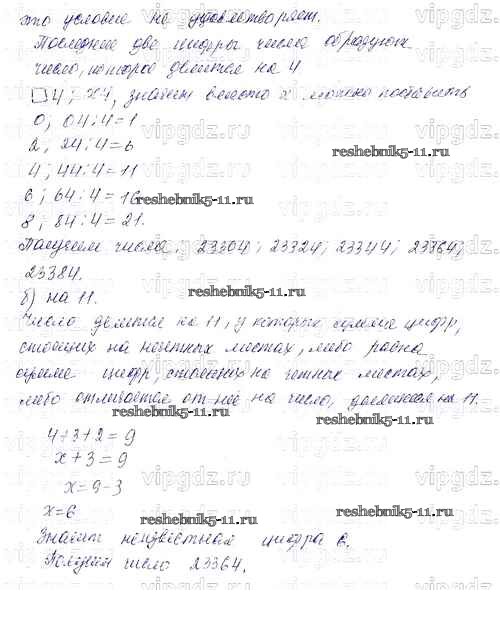 это условие не удовлетворяет.
Последние две цифры числа образуют
число, которое делится на 4
□4; x4, значит вместо x можно поставить
0; 04:4=1
2; 24:4=6
reshebnik5-11.ru
4; 44:4=11
6; 64:4=16
reshebnik5-11.ru
8; 84:4=21.
Получим числа: 23304; 23324; 23344; 23364;
23384.
б) на 11.
reshebnik5-11.ru
Число делится на 11, у которых сумма цифр,
стоящих на нечетных местах, либо равна
сумме цифр, стоящих на четных местах,
либо отличается от неё на число, делящееся на 11.
reshebnik5-11.ru
reshebnik5-11.ru
4+3+2=9
x+3=9
x=9-3
x=6
reshebnik5-11.ru
Значит неизвестная цифра 6.
Получим число 23364.
vipgdz.ru